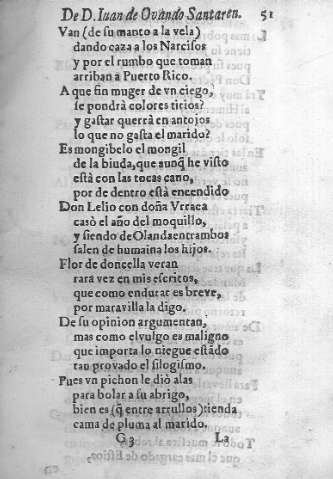 De D. Iuan de Ovando Santaren. 51
Van (de su manto a la vela)
dando caza a los Narcisos
y por el rumbo que toman
arriban a Puerto Rico.
A que fin muger de vn ciego,
se pondrà colores ticios?
y gastar querrà en antojos
lo que no gasta el marido?
Es mongibelo el mongil
de la biuda, que aunq̃ he visto
està con las tocas cano,
por de dentro està encendido
Don Lelio con doña Vrraca
casò el año del moquillo,
y siendo de Olanda entrambos
salen de humaina los hijos.
Flor de doncella veran
rara vez en mis escritos,
que como en durar es breve,
por maravilla la digo.
De su opinion argumentan,
mas como el vulgo es maligno
que importa lo niegue estãdo
tan provado el silogismo.
Pues vn pichon le diò alas
para bolar a su abrigo,
bien es (q̃ entre arrullos) tienda
cama de pluma al marido.
G 3 La